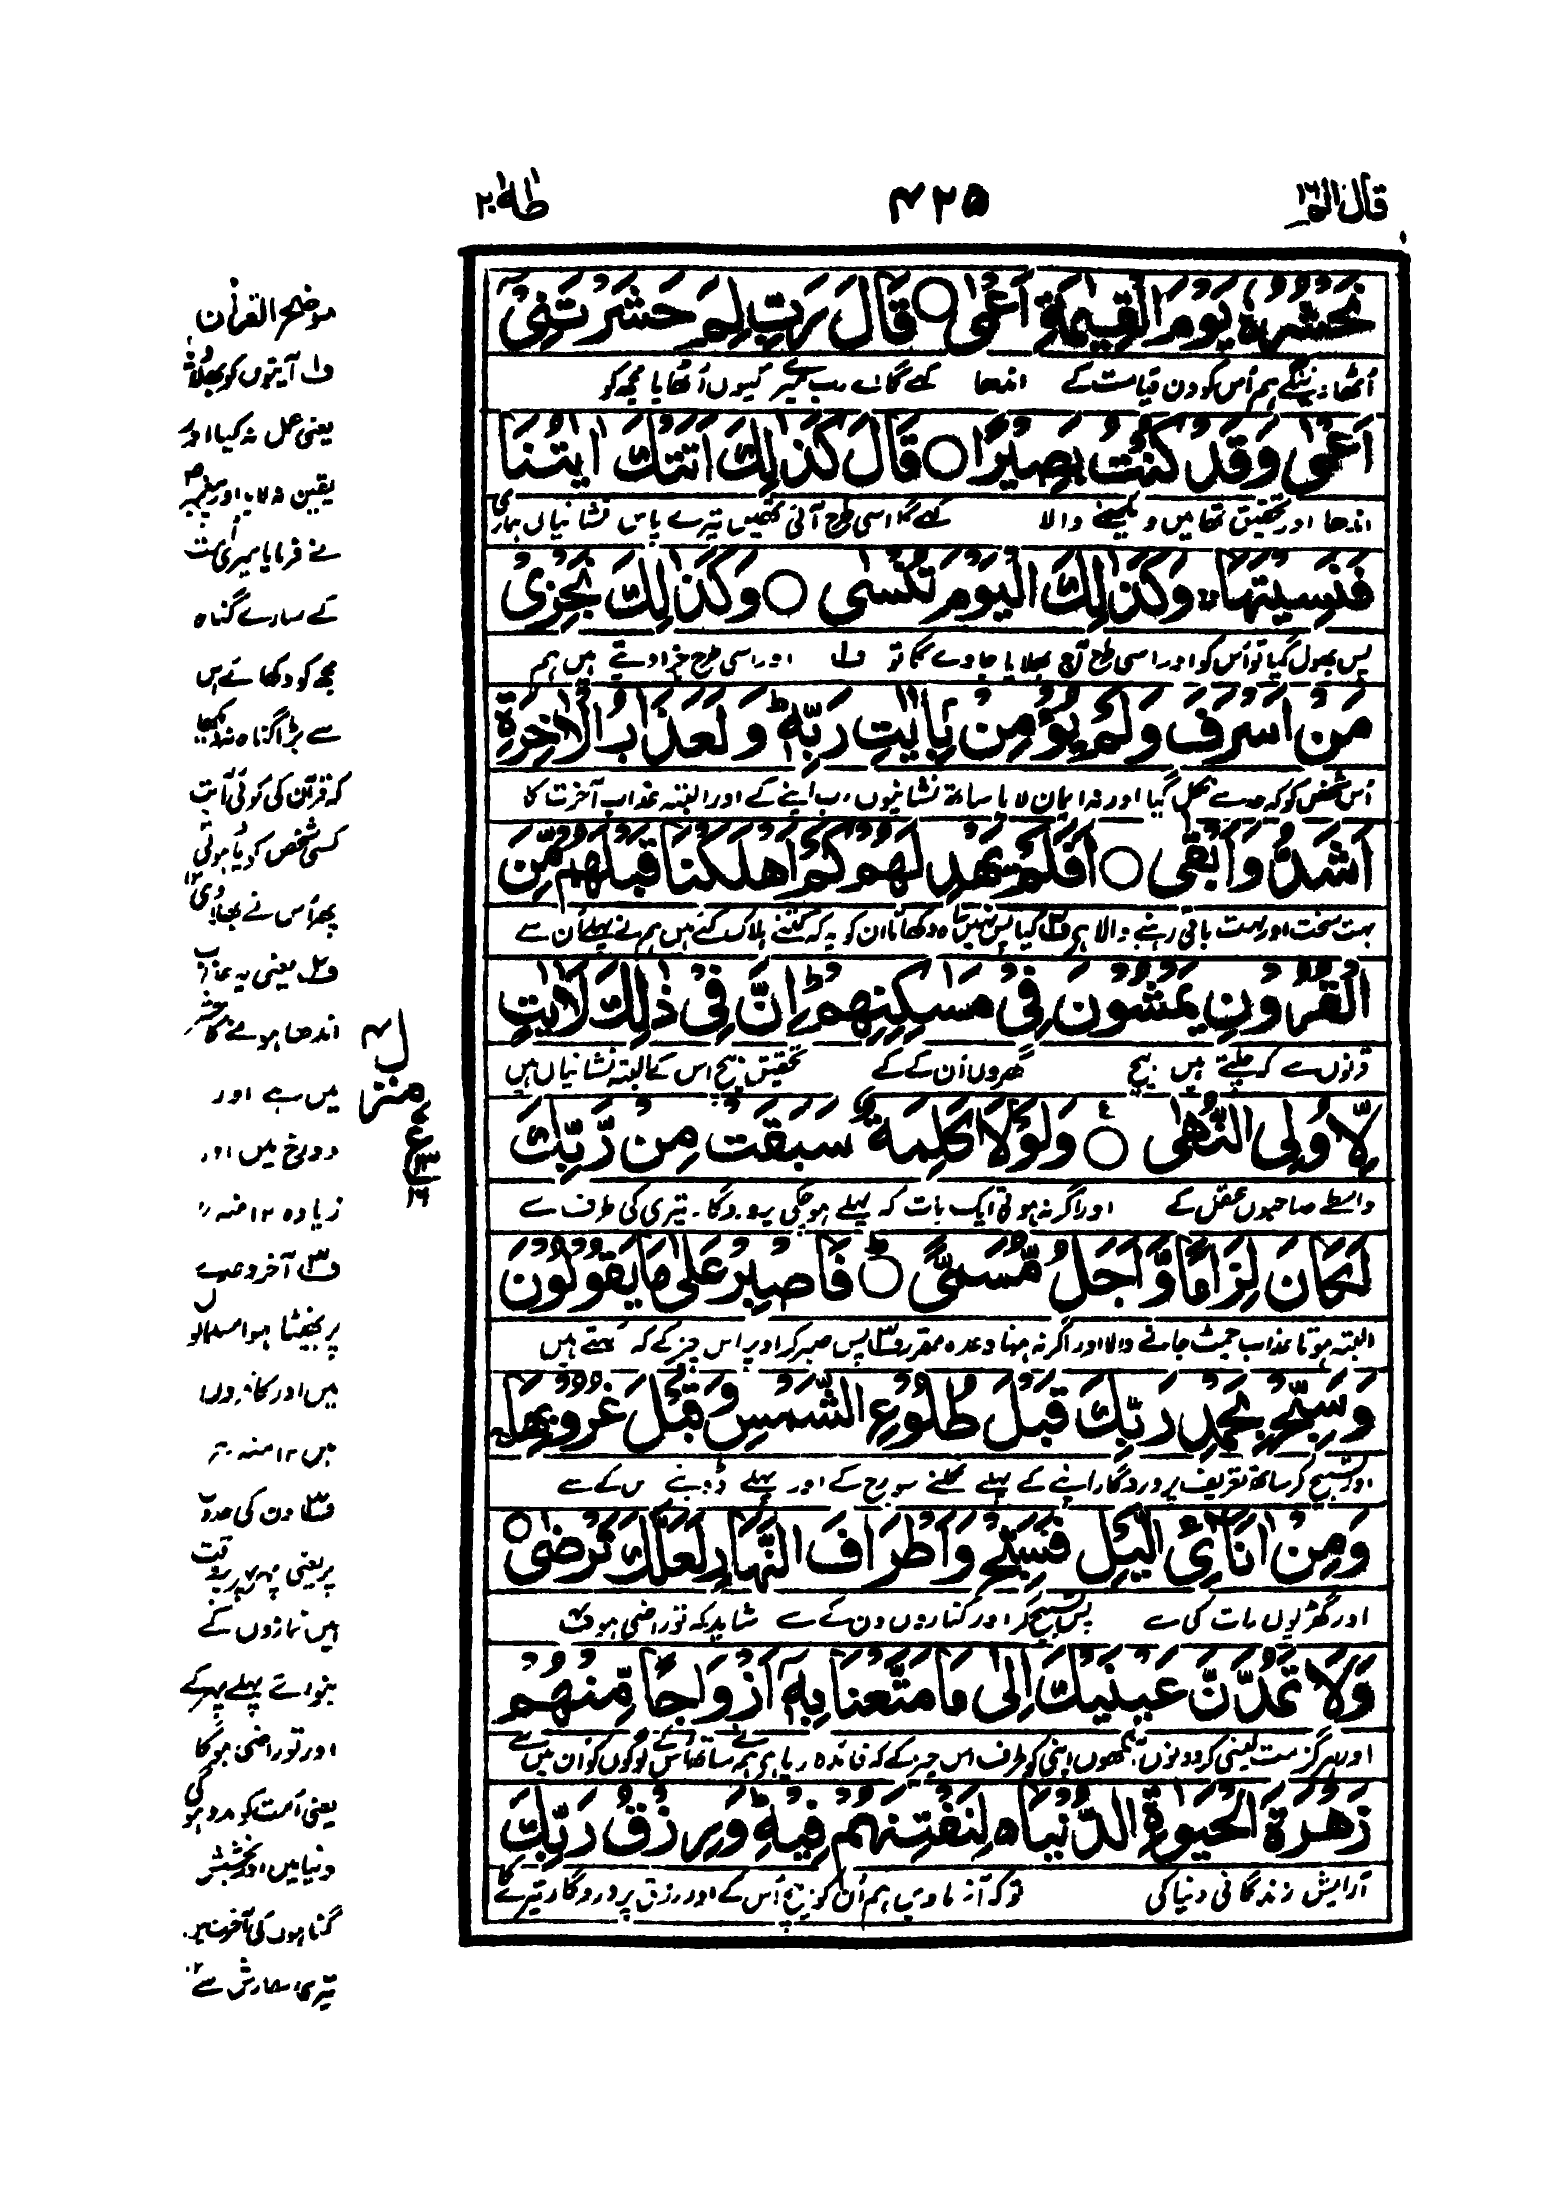 قال الم ١٦
٤٢٥
طٰهٰ ٢٠
نَحْشُرُهٗ يَوْمَ الْقِيٰمَةِ اَعْمٰى ○ قَالَ رَبِّ لِمَ حَشَرْتَنِيْٓ
اُٹھاوینگے ہم اُس کو دن قیامت کے اندھا کہے گا اے رب میرے کیوں اُٹھایا مجھ کو
اَعْمٰى وَقَدْ كُنْتُ بَصِيْرًا ○ قَالَ كَذٰلِكَ اَتَتْكَ اٰيٰتُنَا
اندھا اور تحقیق تھا میں دیکھنے والا کہے گا اسی طرح آئی تھیں تیرے پاس نشانیاں ہماری
فَنَسِيْتَهَا ۚ وَكَذٰلِكَ الْيَوْمَ تُنْسٰى ○ وَكَذٰلِكَ نَجْزِيْ
پس بھول گیا تو اُس کو اور اسی طرح آج بھلایا جاوے گا تو ف١ اور اسی طرح جزا دیتے ہیں ہم
مَنْ اَسْرَفَ وَلَمْ يُؤْمِنْۢ بِاٰيٰتِ رَبِّهٖ ؕ وَلَعَذَابُ الْاٰخِرَةِ
اُس شخص کو کہ حد سے نکل گیا اور نہ ایمان لایا ساتھ نشانیوں رب اپنے کے اور البتہ عذاب آخرت کا
اَشَدُّ وَاَبْقٰى ○ اَفَلَمْ يَهْدِ لَهُمْ كَمْ اَهْلَكْنَا قَبْلَهُمْ مِّنَ
بہت سخت اور بہت باقی رہنے والا ہے ف٢ کیا پس نہیں راہ دکھاتا ان کو یہ کہ کتنے ہلاک کئے ہیں ہم نے پہلے اُن سے
الْقُرُوْنِ يَمْشُوْنَ فِيْ مَسٰكِنِهِمْ ؕ اِنَّ فِيْ ذٰلِكَ لَاٰيٰتٍ
قرنوں سے کہ چلتے ہیں بیچ گھروں اُن کے کے تحقیق بیچ اس کے البتہ نشانیاں ہیں
لِّاُولِي النُّهٰى ○ وَلَوْلَا كَلِمَةٌ سَبَقَتْ مِنْ رَّبِّكَ
واسطے صاحبوں عقل کے اور اگر نہ ہوتی ایک بات کہ پہلے ہو چکی پروردگار تیرے کی طرف سے
لَكَانَ لِزَامًا وَّاَجَلٌ مُّسَمًّى ؕ○ فَاصْبِرْ عَلٰى مَا يَقُوْلُوْنَ
البتہ ہوتا عذاب چمٹ جانے والا اور اگر نہ ہوتا وعدہ مقرر ف٣ پس صبر کر اوپر اس چیز کے کہ کہتے ہیں
وَسَبِّحْ بِحَمْدِ رَبِّكَ قَبْلَ طُلُوْعِ الشَّمْسِ وَقَبْلَ غُرُوْبِهَا ۚ
اور تسبیح کر ساتھ تعریف پروردگار اپنے کے پہلے نکلنے سورج کے اور پہلے ڈوبنے اس کے سے
وَمِنْ اٰنَآئِ الَّيْلِ فَسَبِّحْ وَاَطْرَافَ النَّهَارِ لَعَلَّكَ تَرْضٰى ○
اور گھڑیوں رات کی سے پس تسبیح کر اور کناروں دن کے سے شاید کہ تو راضی ہو ف٤
وَلَا تَمُدَّنَّ عَيْنَيْكَ اِلٰى مَا مَتَّعْنَا بِهٖٓ اَزْوَاجًا مِّنْهُمْ
اور ہرگز مت کھینچ کر دونوں آنکھوں اپنی کو طرف اس چیز کے کہ فائدہ دیا ہے ہم نے ساتھ اُس کے لوگوں کو اُن میں سے
زَهْرَةَ الْحَيٰوةِ الدُّنْيَا ۙ لِنَفْتِنَهُمْ فِيْهِ ؕ وَرِزْقُ رَبِّكَ
آرایش زندگانی دنیا کی تو کہ آزماویں ہم اُن کو بیچ اُس کے اور رزق پروردگار تیرے کا
موضح القرآن
ف١ آیتوں کو بھلانا
یعنی عمل نہ کیا اور
یقین نہ لایا اور پیغمبر ص
نے فرمایا میری اُمت
کے سارے گناہ
مجھ کو دکھائے اس
سے بڑا گناہ نہ دیکھا
کہ قرآن کی کوئی آیت
کسی شخص کو یاد ہوئی
پھر اُس نے بھلا دی ١٢
ف٢ یعنی یہ عذاب
اندھا ہونے کا حشر
میں ہے اور
دوزخ میں اور
زیادہ ١٢ منہ رح
ف٣ آخر وعدے
پر بھیٹنا ہوا مسلمانوں
میں اور کافروں
میں ١٢ منہ رح
ف٤ دن کی حدوں
پر یعنی پہر پر وقت
ہیں نمازوں کے
بنواتے پہلے پہر کے
اور تو راضی ہو گا
یعنی اُمت کو مدد ہو گی
دنیا میں اور بخشش
گناہوں کی آخرت میں
تیری سفارش سے ١٢
منزل ٤
ع
١٣
١٦